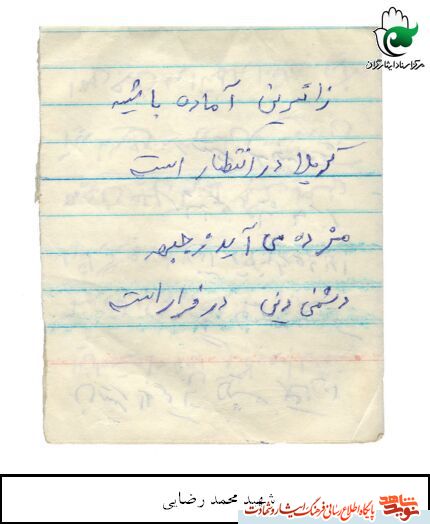 مرکز اسناد ایثارگران
زائرین آماده باشید
کربلا در انتظار است
مژده می آید ز جبهه
دشمن دین در فرار است
شهید محمد رضایی
نوید شاهد
پایگاه اطلاع رسانی فرهنگ ایثار و شهادت